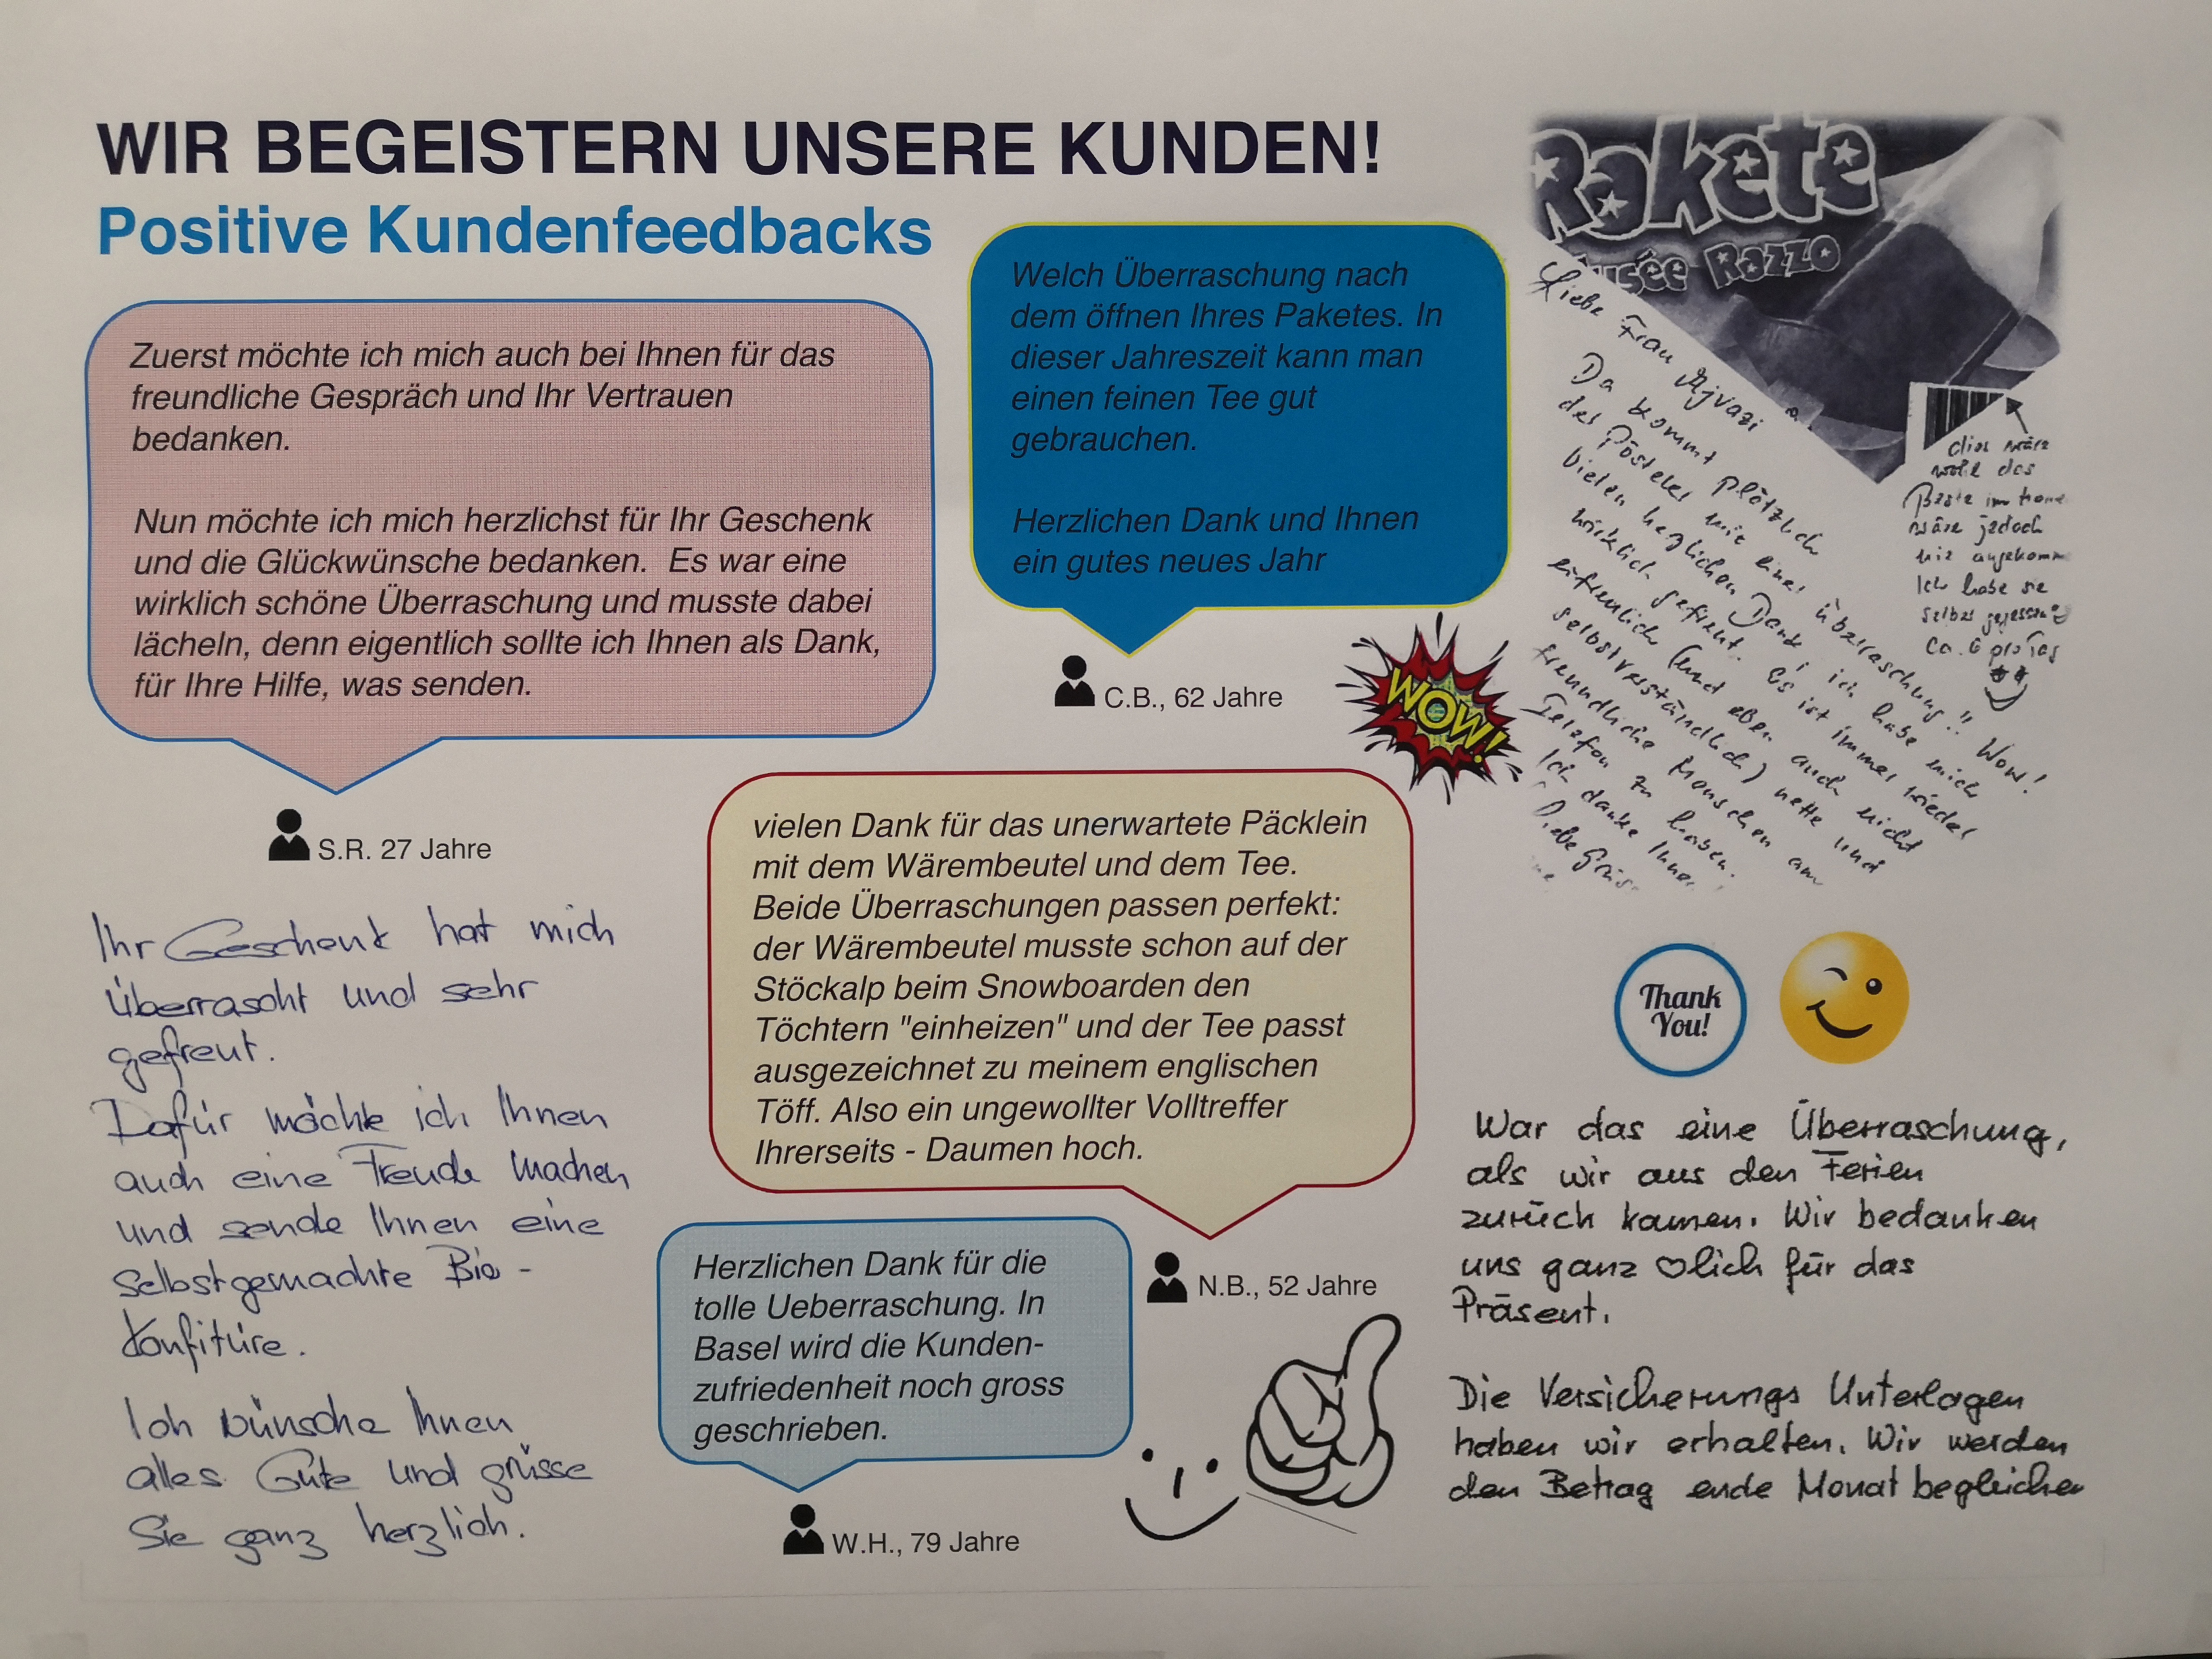 WIR BEGEISTERN UNSERE KUNDEN!
Positive Kundenfeedbacks
Zuerst möchte ich mich auch bei Ihnen für das
freundliche Gespräch und Ihr Vertrauen
bedanken.
Nun möchte ich mich herzlichst für Ihr Geschenk
und die Glückwünsche bedanken.  Es war eine
wirklich schöne Überraschung und musste dabei
lächeln, denn eigentlich sollte ich Ihnen als Dank,
für Ihre Hilfe, was senden.
S.R. 27 Jahre
Welch Überraschung nach
dem öffnen Ihres Paketes. In
dieser Jahreszeit kann man
einen feinen Tee gut
gebrauchen.
Herzlichen Dank und Ihnen
ein gutes neues Jahr
C.B., 62 Jahre
WOW!
Rakete
Razzo
Liebe Frau Ajvazi
Da kommt plötzlich
der Pösteler mit einer Überraschung!! Wow!
Vielen herzlichen Dank! ich habe mich
wirklich gefreut. Es ist immer wieder
erfreulich (und eben auch nicht
selbstverständlich) nette und
freundliche Menschen am
Telefon zu haben.
Ich danke Ihnen
Liebe Grüs
dies wäre
wohl das
Beste im
wäre jedoch
nie
Ich habe sie
selber gegessen
ca. 6 pro Tag
vielen Dank für das unerwartete Päcklein
mit dem Wärembeutel und dem Tee.
Beide Überraschungen passen perfekt:
der Wärembeutel musste schon auf der
Stöckalp beim Snowboarden den
Töchtern "einheizen" und der Tee passt
ausgezeichnet zu meinem englischen
Töff. Also ein ungewollter Volltreffer
Ihrerseits - Daumen hoch.
N.B., 52 Jahre
Ihr Geschenk hat mich
überrascht und sehr
gefreut.
Dafür möchte ich Ihnen
auch eine Freude machen
und sende Ihnen eine
selbstgemachte Bio-
Konfitüre.
Ich wünsche Ihnen
alles Gute und grüsse
Sie ganz herzlich.
Herzlichen Dank für die
tolle Ueberraschung. In
Basel wird die Kunden-
zufriedenheit noch gross
geschrieben.
W.H., 79 Jahre
Thank
You!
War das eine Überraschung,
als wir aus den Ferien
zurück kamen. Wir bedanken
uns ganz ♡lich für das
Präsent.
Die Versicherungs Unterlagen
haben wir erhalten. Wir werden
den Betrag ende Monat begleichen